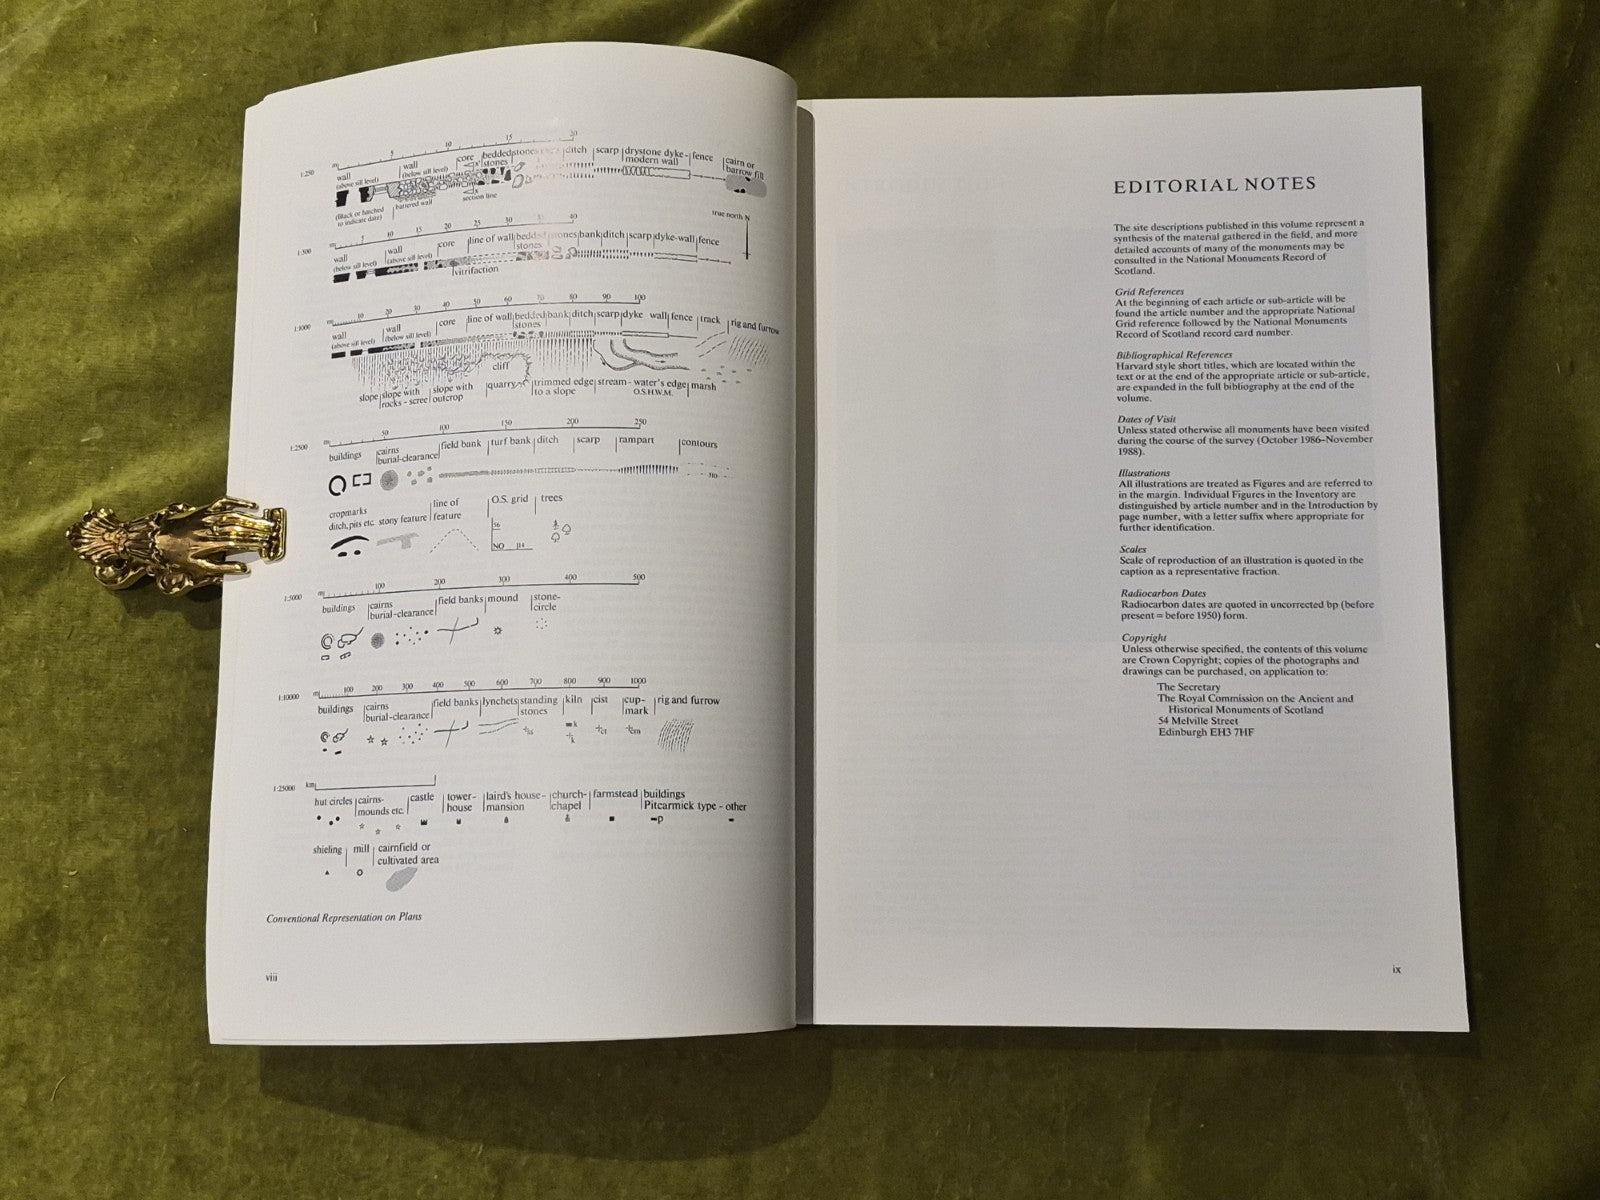 5 10 15 20
1:250 m
wall (above sill level) wall (below sill level) core bedded stones stones ditch scarp drystone dyke- modern wall fence cairn or barrow fill
(Black or hatched to indicate date) battered wall section line
true north N
10 15 20 25 30 40
1:500 m
wall (below sill level) wall (above sill level) core line of wall bedded stones stones bank ditch scarp dyke-wall fence
vitrifaction
10 20 30 40 50 60 70 80 90 100
1:1000 m
wall (above sill level) wall (below sill level) core line of wall bedded stones bank ditch scarp dyke wall fence track rig and furrow
cliff
slope slope with rocks - scree slope with outcrop quarry trimmed edge to a slope stream - water's edge O.S.H.W.M. marsh
50 100 150 200 250
1:2500 m
buildings cairns burial-clearance field bank turf bank ditch scarp rampart contours
310
cropmarks ditch, pits etc. stony feature line of feature O.S. grid trees
56
NO 114
100 200 300 400 500
1:5000 m
buildings cairns burial-clearance field banks mound stone-circle
100 200 300 400 500 600 700 800 900 1000
1:10000 m
buildings cairns burial-clearance field banks lynchets standing stones kiln cist cup-mark rig and furrow
ss k k ct cm
1:25000 km
hut circles cairns-mounds etc. castle tower-house laird's house-mansion church-chapel farmstead buildings Pitcarmick type - other
p
shieling mill cairnfield or cultivated area
Conventional Representation on Plans
viii
EDITORIAL NOTES
The site descriptions published in this volume represent a
synthesis of the material gathered in the field, and more
detailed accounts of many of the monuments may be
consulted in the National Monuments Record of
Scotland.
Grid References
At the beginning of each article or sub-article will be
found the article number and the appropriate National
Grid reference followed by the National Monuments
Record of Scotland record card number.
Bibliographical References
Harvard style short titles, which are located within the
text or at the end of the appropriate article or sub-article,
are expanded in the full bibliography at the end of the
volume.
Dates of Visit
Unless stated otherwise all monuments have been visited
during the course of the survey (October 1986–November
1988).
Illustrations
All illustrations are treated as Figures and are referred to
in the margin. Individual Figures in the Inventory are
distinguished by article number and in the Introduction by
page number, with a letter suffix where appropriate for
further identification.
Scales
Scale of reproduction of an illustration is quoted in the
caption as a representative fraction.
Radiocarbon Dates
Radiocarbon dates are quoted in uncorrected bp (before
present = before 1950) form.
Copyright
Unless otherwise specified, the contents of this volume
are Crown Copyright; copies of the photographs and
drawings can be purchased, on application to:
The Secretary
The Royal Commission on the Ancient and
Historical Monuments of Scotland
54 Melville Street
Edinburgh EH3 7HF
ix